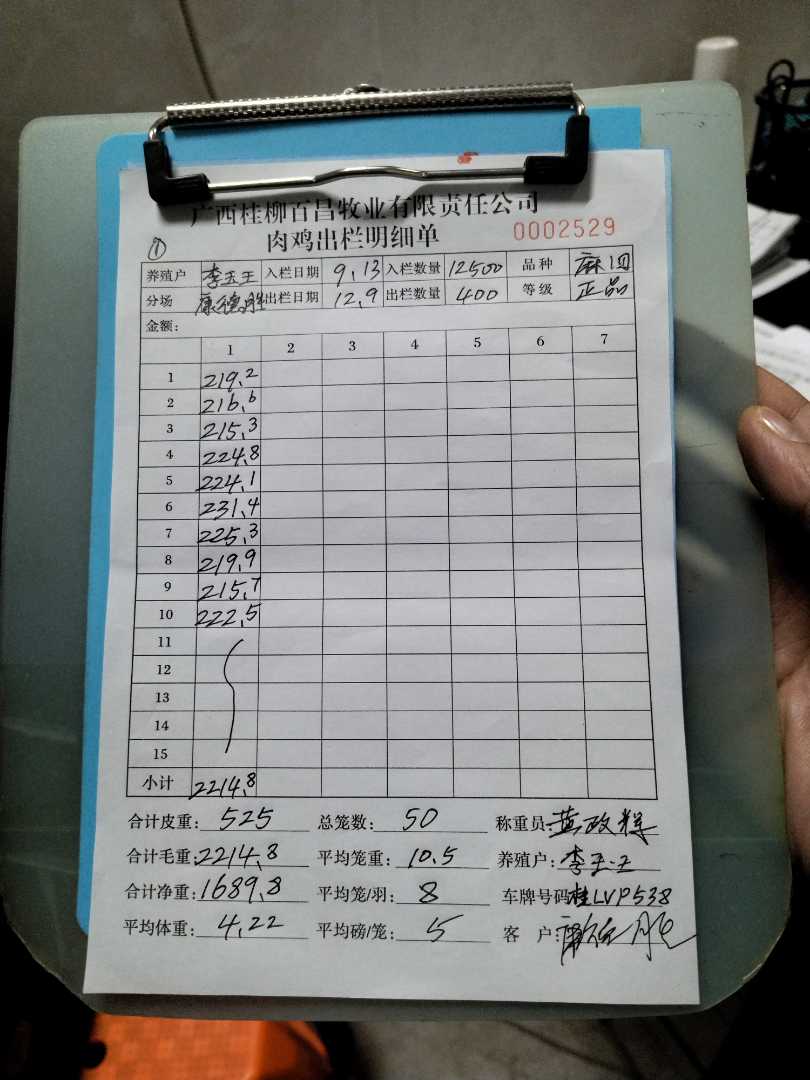 广西桂柳百昌牧业有限责任公司
肉鸡出栏明细单 0002529
①
养殖户 李玉王 入栏日期 9,13 入栏数量 12500 品种 麻
分场 康德胜 出栏日期 12,9 出栏数量 400 等级 正品
金额:
1 2 3 4 5 6 7
1 219,2
2 216,6
3 215,3
4 224,8
5 224,1
6 231,4
7 225,3
8 219,9
9 215,7
10 222,5
11
12
13
14
15
小计 2214,8
合计皮重: 525 总笼数: 50 称重员: 黄政辉
合计毛重: 2214,8 平均笼重: 10.5 养殖户: 李玉王
合计净重: 1689,8 平均笼/羽: 8 车牌号码 桂LVP538
平均体重: 4,22 平均磅/笼: 5 客 户: